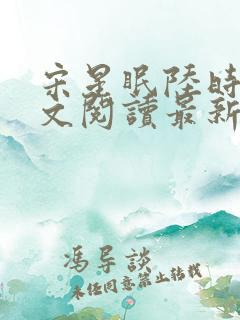 宋星眠陸時
文閱讀最新
馮导談
未经同意禁止转载